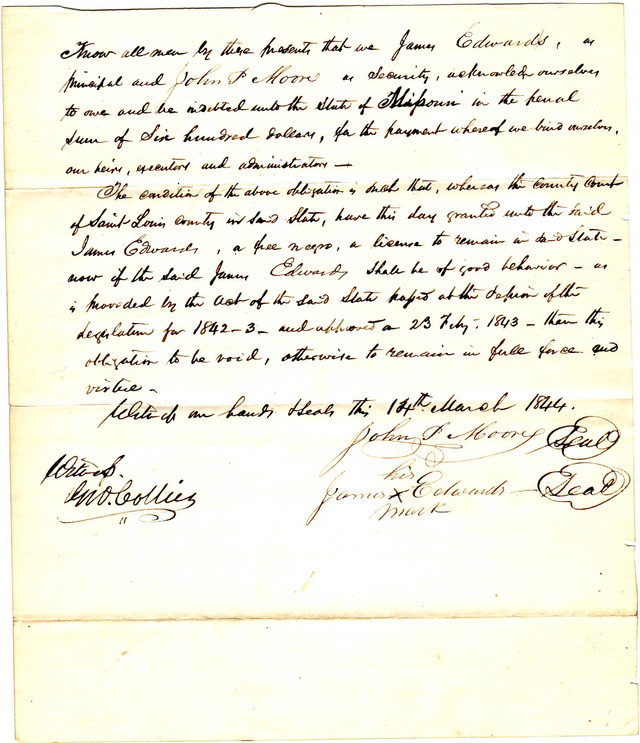 Know all men by these presents that we James Edwards, as
principal and John P Moore as Security, acknowledge ourselves
to owe and be indebted unto the State of Missouri in the penal
sum of Six hundred dollars, for the payment whereof we bind ourselves,
our heirs, executors and administrators —
The condition of the above obligation is such that, whereas the County Court
of Saint Louis County in said State, have this day granted unto the said
James Edwards, a free negro, a license to remain in said State —
now if the said James Edwards shall be of good behavior — as
is provided by the act of the said State passed at the session of the
Legislature for 1842-3 — and approved 23 Feby. 1843 — then this
obligation to be void, otherwise to remain in full force and
virtue —
Witness our hands & seals this 14th March 1844.
John P Moore Seal
his
James X Edwards — Seal
mark
Witness.
Collier